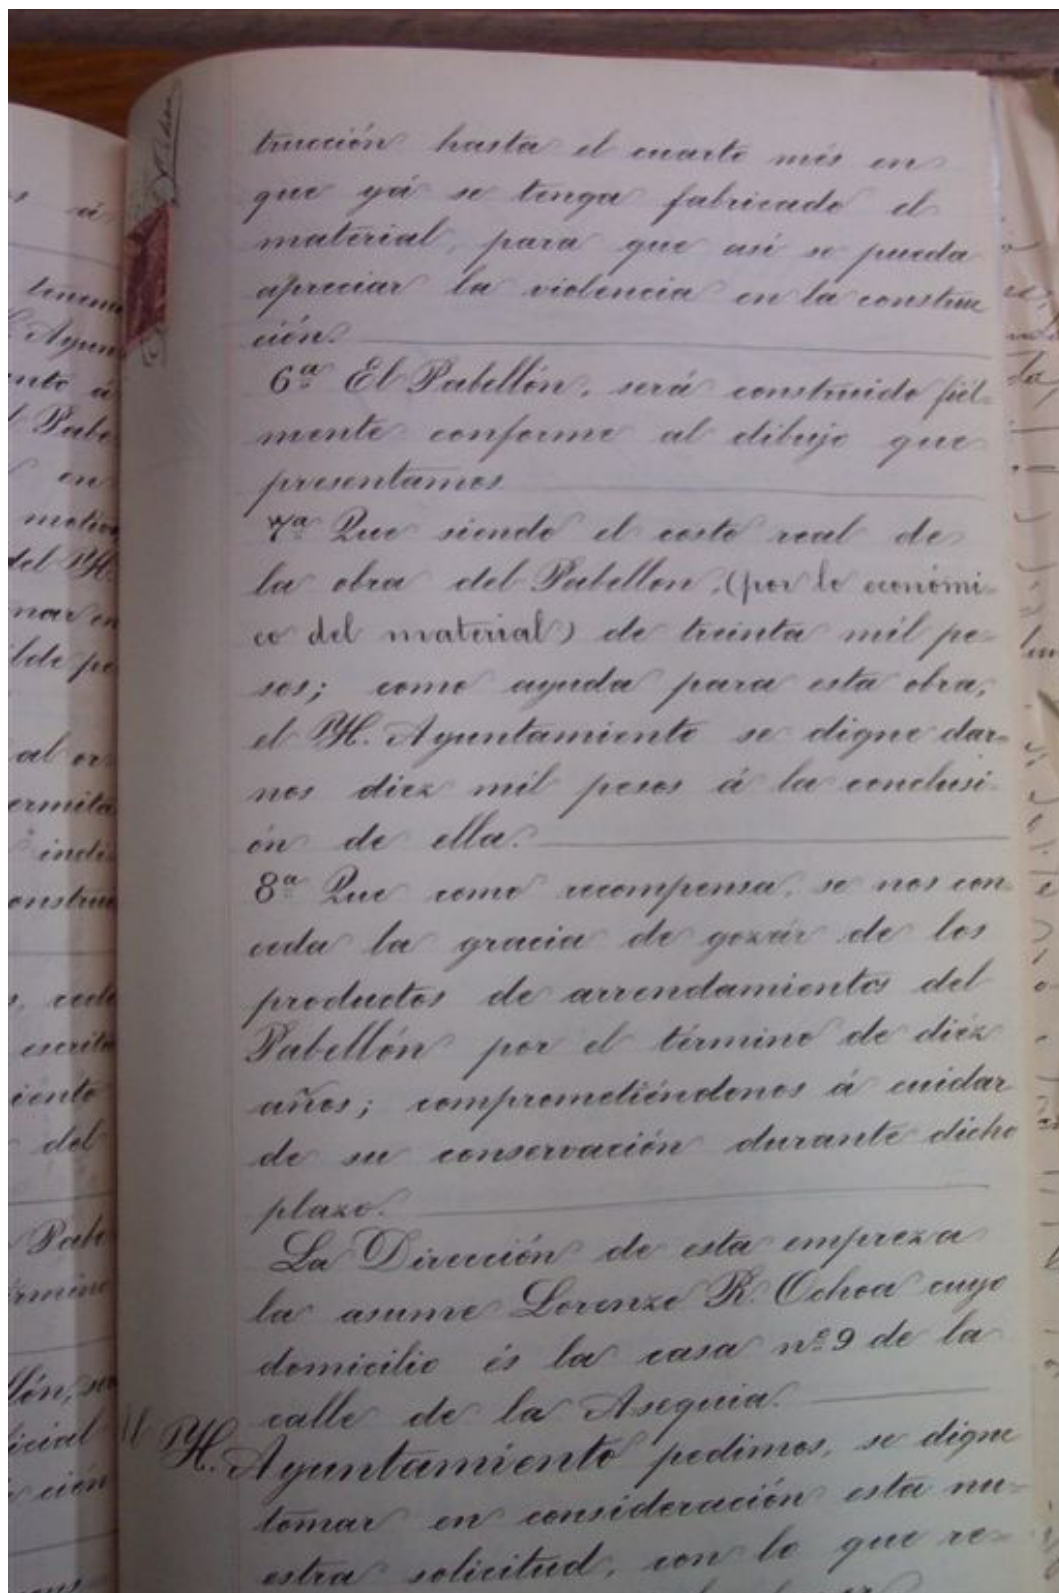 trucción hasta el cuarto més en
que yá se tenga fabricado el
material, para que así se pueda
apreciar la violencia en la construc
ción.
6ª El Pabellón, será construido fiél-
mente conforme al dibujo que
presentamos
7ª Que siendo el costo real de
la obra del Pabellon, (por lo económi-
co del material) de treinta mil pe-
sos; como ayuda para esta obra,
el H. Ayuntamiento se digne dar-
nos diez mil pesos á la conclusi-
ón de ella.
8ª Que como recompensa, se nos con-
ceda la gracia de gozár de los
productos de arrendamientos del
Pabellón por el término de diéz
años; comprometiéndonos á cuidar
de su conservación durante dicho
plazo.
La Dirección de esta empreza
la asume Lorenzo R. Ochoa cuyo
domicilio és la casa nº 9 de la
calle de la Asequia.
Al H. Ayuntamiento pedimos, se digne
tomar en consideración esta nu-
estra solicitud, con lo que re-